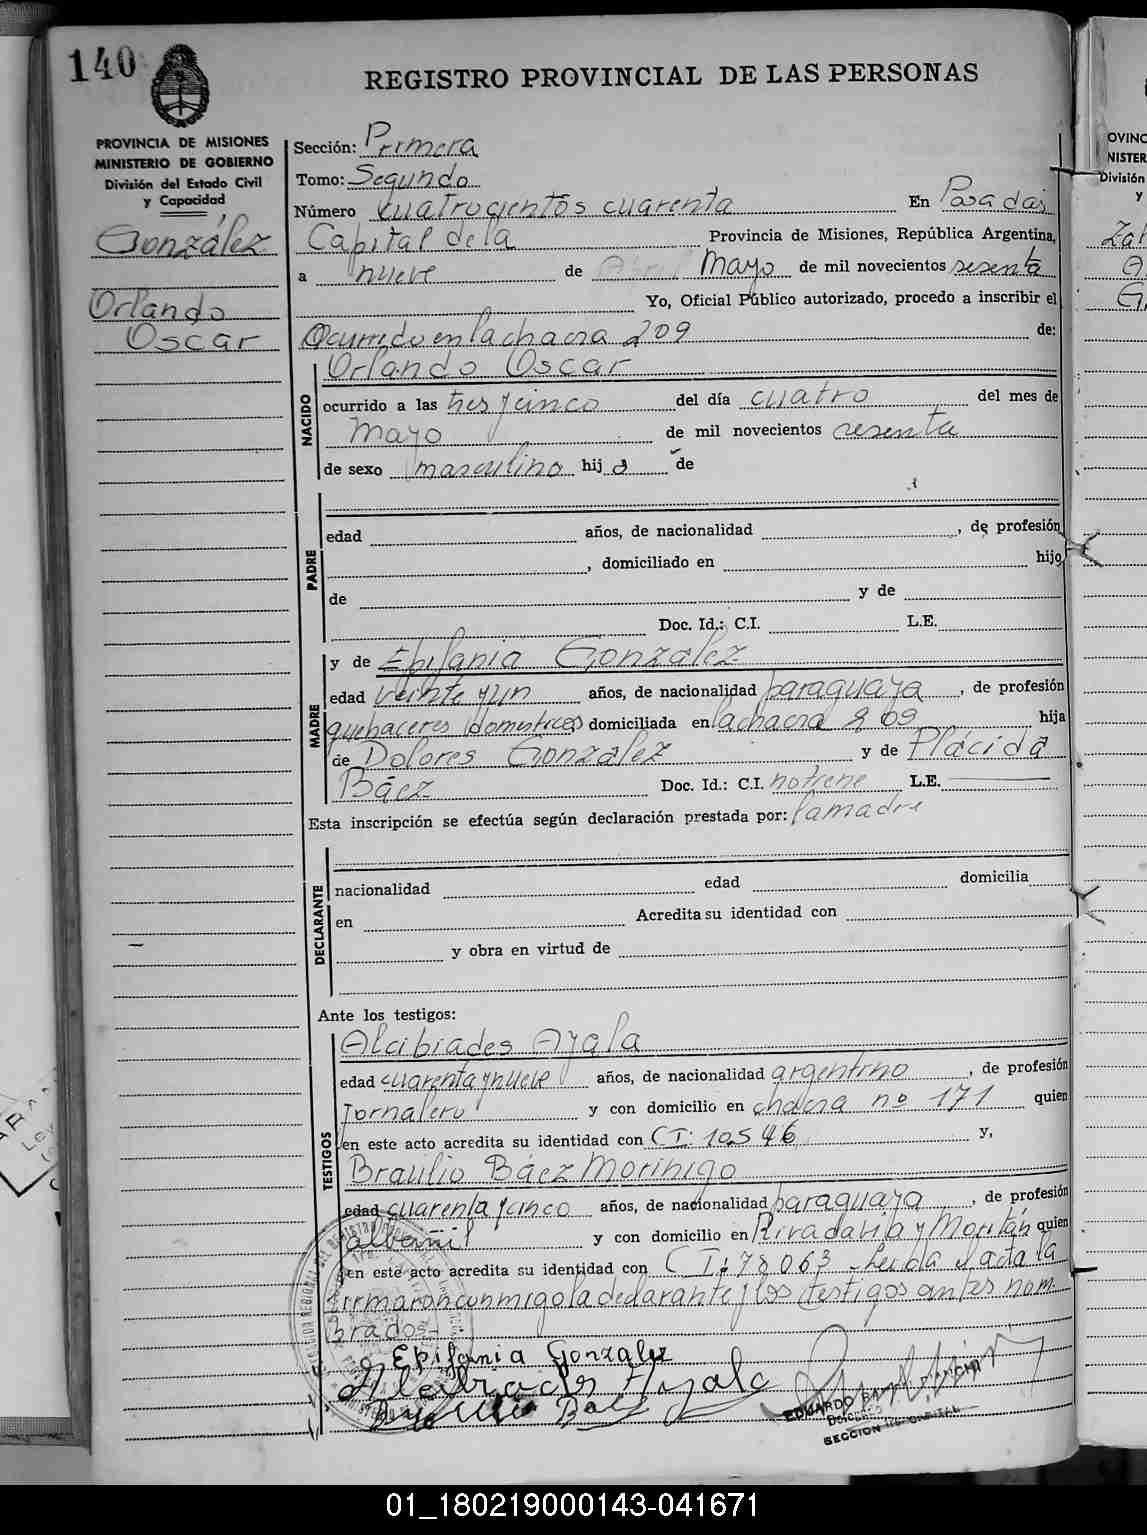 140
REGISTRO PROVINCIAL DE LAS PERSONAS
PROVINCIA DE MISIONES
MINISTERIO DE GOBIERNO
División del Estado Civil
y Capacidad
González
Orlando
Oscar
Sección: Primera
Tomo: Segundo
Número cuatrocientos cuarenta En Posadas
Capital de la Provincia de Misiones, República Argentina,
a nueve de Abril Mayo de mil novecientos sesenta
Yo, Oficial Público autorizado, procedo a inscribir el
Ocurrido en la chacra 209 de:
Orlando Oscar
NACIDO
ocurrido a las tres y cinco del día cuatro del mes de
Mayo de mil novecientos sesenta
de sexo masculino hijo de
PADRE
edad años, de nacionalidad , de profesión
, domiciliado en hijo
de y de
Doc. Id.: C.I. L.E.
MADRE
y de Epifania González
edad veinte y un años, de nacionalidad paraguaya , de profesión
quehaceres domesticos domiciliada en la chacra 209 hija
de Dolores González y de Plácida
Báez Doc. Id.: C.I. no tiene L.E.
Esta inscripción se efectúa según declaración prestada por: la madre
DECLARANTE
nacionalidad edad domicilia
en Acredita su identidad con
y obra en virtud de
Ante los testigos:
TESTIGOS
Alcibiades Ayala
edad cuarenta y nueve años, de nacionalidad argentino , de profesión
Jornalero y con domicilio en chacra nº 171 quien
en este acto acredita su identidad con C I: 10.546 y,
Braulio Báez Morinigo
edad cuarenta y cinco años, de nacionalidad paraguaya , de profesión
albañil y con domicilio en Rivadavia y quien
en este acto acredita su identidad con C I: 78063 Leida el acta la
firmaron conmigo la declarante y los testigos antes nom
brados-
Epifania Gonzalez
Alcibiades Ayala
Braulio Baez
EDUARDO
SECCION
OVINC
NISTER
División
y
01_180219000143-041671